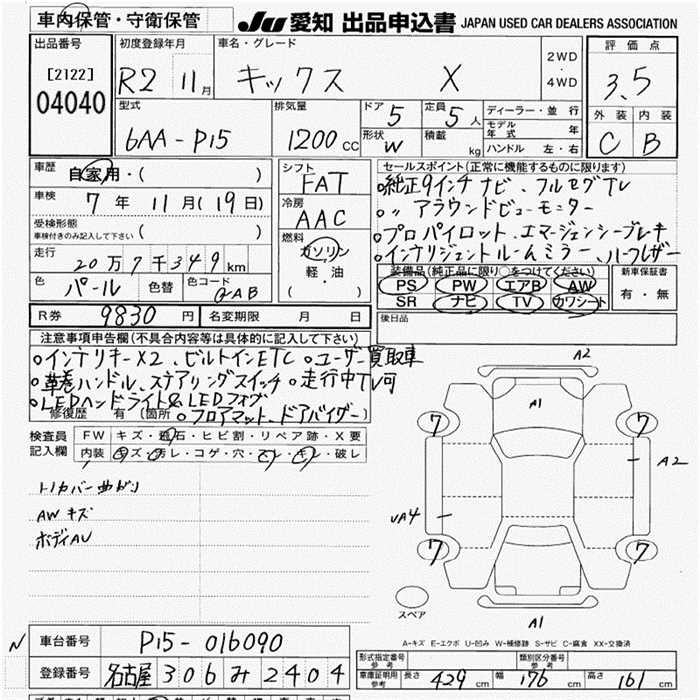 車内保管・守衛保管
JU 愛知 出品申込書 JAPAN USED CAR DEALERS ASSOCIATION
出品番号 [2122] 04040
初度登録年月 R2 11月
車名・グレード キックス X
2WD・4WD
評価点 3.5
外装 C 内装 B
型式 6AA-P15
排気量 1200cc
ドア 5 形状 W
定員 5人 積載 kg
ディーラー・並行
モデル年式 年
ハンドル 左・右
車歴 自家用・( )
車検 7年 11月(19日)
受検形態 車検付きのみ記入して下さい ( )
走行 20万7千349km
色 パール 色替 色コード QAB
シフト FAT
冷房 AAC
燃料 ガソリン 軽・油 ( )
セールスポイント(正常に機能するものに限ります)
純正9インチナビ、フルセグTV
〃 アラウンドビューモニター
プロパイロット、エマージェンシーブレーキ
インテリジェントルームミラー、ハーフレザー
装備品(純正品に限り○をつけてください)
PS PW エアB AW
SR ナビ TV カワシート
新車保証書 有・無
後日品
R券 9830円 名変期限 月 日
注意事項申告欄(不具合内容等は具体的に記入して下さい)
インテリキーX2、ビルトインETC ユーザー買取車
革巻ハンドル、ステアリングスイッチ 走行中TV可
LEDヘッドライト&LEDフォグ
修復歴 有 (箇所 フロアマット、ドアバイザー)
検査員記入欄
FW キズ・飛石・ヒビ割・リペア跡・X要
内装 キズ・汚レ・コゲ・穴・スレ・キレ・破レ
トノカバー曲がり
AWキズ
ボディAU
A2
A1
7 7
A2
UA4
7 7
スペア
A1
A-キズ E-エクボ U-凹み W-補修跡 S-サビ C-腐食 XX-交換済
車台番号 P15-016090
登録番号 名古屋 306 み 2404
形式指定番号 参考
類別区分番号 参考
車庫証明用 参考 長さ 429cm 幅 176cm 高さ 161cm